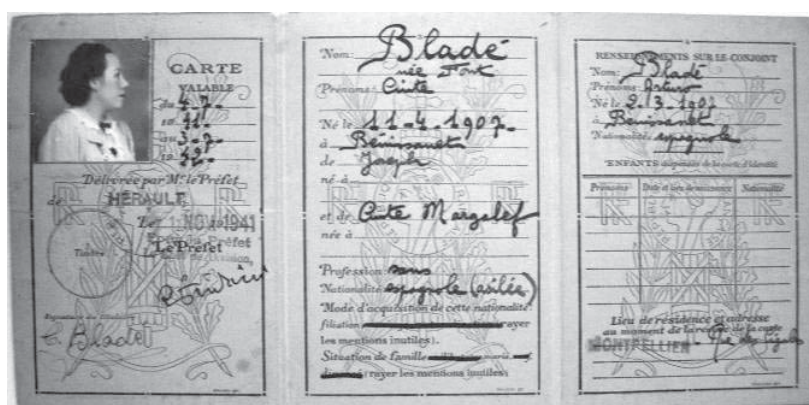 CARTE
VALABLE
du 4-7-
19 41-
au 3-7-
19 42-
Délivrée par Mr le Préfet
de HÉRAULT
Le 1 NOV 1941
Le Préfet
Timbre
Signature du titulaire
C. Bladé
Nom: Bladé
née Font
Prénoms: Cinte
Né le 11-4-1907-
à Bénissanet
de Joseph
né à
et de Cinte Margalef
née à
Profession: sans
Nationalité: espagnole (asilée)
Mode d'acquisition de cette nationalité:
filiation (rayer
les mentions inutiles).
Situation de famille: marié,
(rayer les mentions inutiles)
RENSEIGNEMENTS SUR LE CONJOINT
Nom: Bladé
Prénoms: Arturo
Né le 2-3-1907
à Benissanet
Nationalité: espagnole
ENFANTS dispensés de la carte d'identité
Prénoms Date et lieu de naissance Nationalité
Lieu de résidence et adresse
au moment de la remise de la carte
MONTPELLIER - Rue des